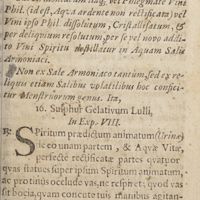 Phil. (idest, Aqua ardente non rectificata) vel
Vini ipso Phil. dissolutum, Cristallisatum, &
per deliquium resolutum, per se vel novo addi-
to Vini Spiritu distillatur in Aquam Salis
Armoniaci.
Non ex Sale Armoniaco tantum, sed ex re-
liquis etiam Salibus volatilibus hoc confici-
tur Menstruorum genus. Ita,
16. Sulphur Gelativum Lulli,
In Exp. VIII.
℞. Spiritum prædictum animatum (Urinæ)
ex eo unam partem, & Aquæ Vitæ,
perfectè rectificatæ partes quatuor
quas statues super ipsum Spiritum animatum,
ac protinus occlude vas, ne respiret, quod vas
sit bocia, quam concute tuis manibus agitan-